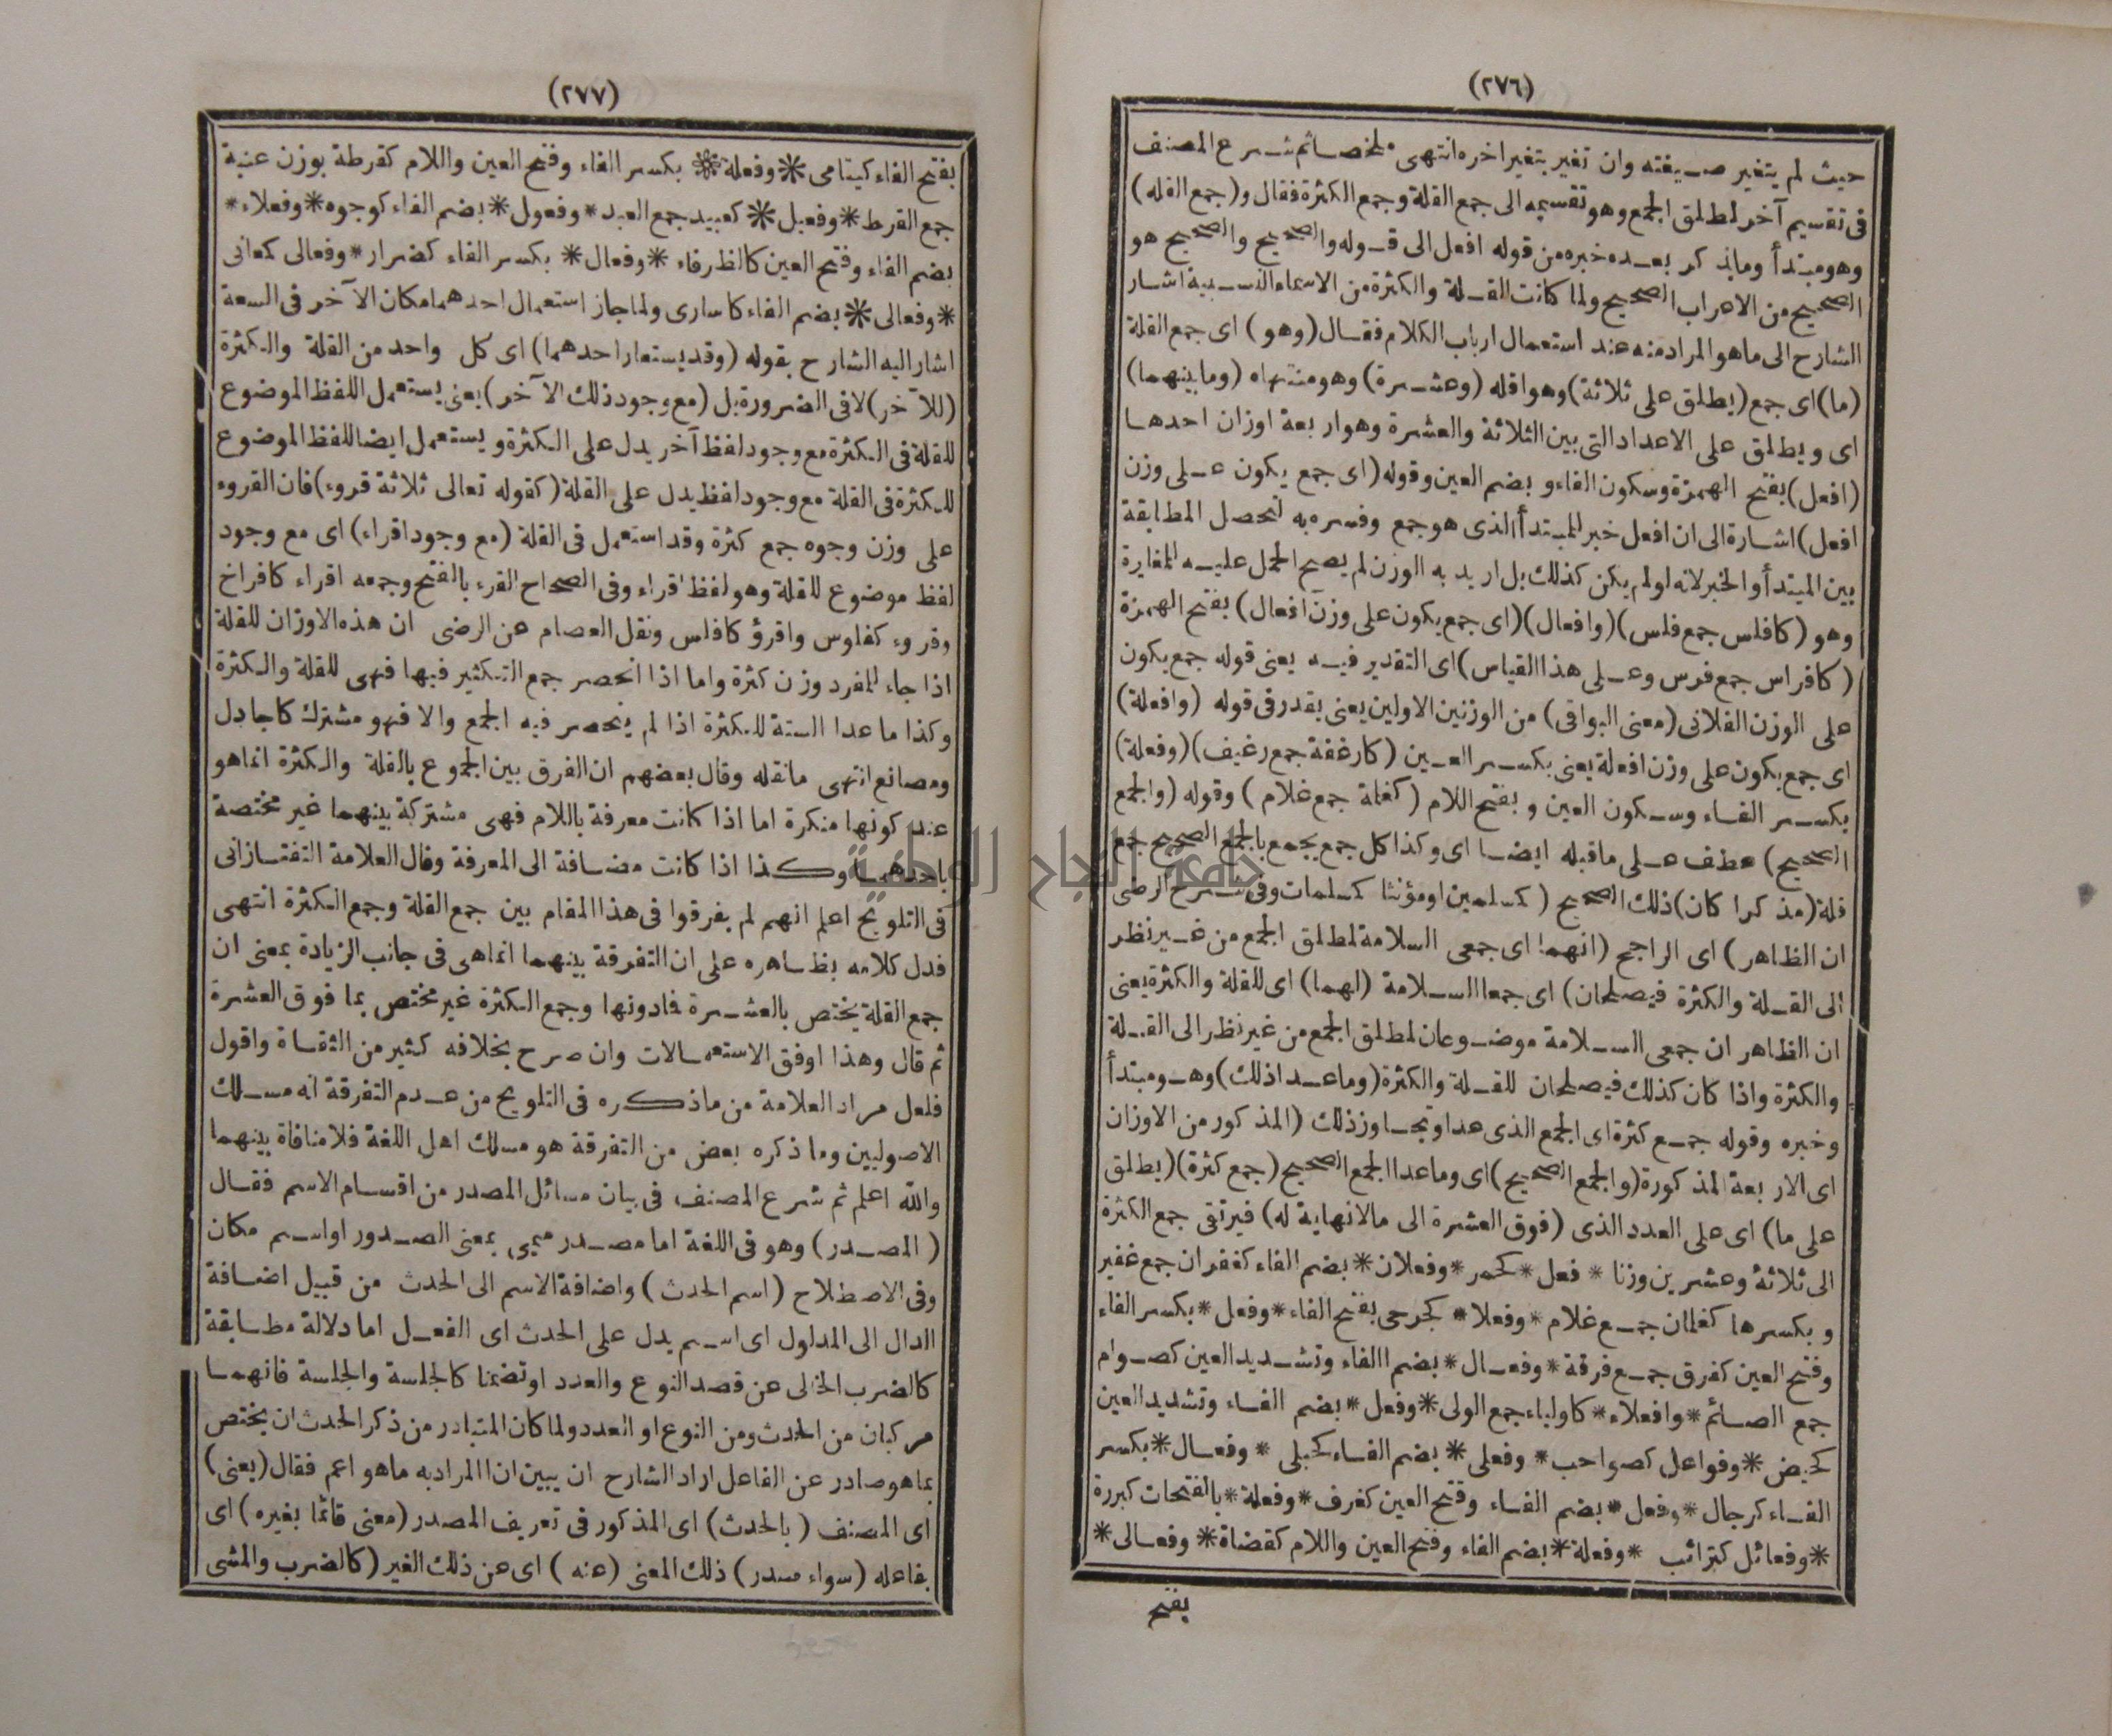 (٢٧٦)
حيث لم يتغير صيغته وان تغير بتغير اخره انتهى ملخصا ثم شرع المصنف
فى تقسيم آخر لمطلق الجمع وهو تقسيمه الى جمع القلة وجمع الكثرة فقال و (جمع القله)
وهو مبتدأ وما يذكر بعده خبره من قوله افعل الى قوله والصحيح والصحيح هو
الصحيح من الاعراب الصحيح ولما كانت القلة والكثرة من الاسماء النسبية اشار
الشارح الى ما هو المراد منه عند استعمال ارباب الكلام فقال (وهو) اى جمع القلة
(ما) اى جمع (يطلق على ثلاثة) وهو اقله (وعشرة) وهو منتهاه (وما بينهما)
اى ويطلق على الاعداد التى بين الثلاثة والعشرة وهو اربعة اوزان احدها
(افعل) بفتح الهمزة وسكون الفاء و بضم العين وقوله (اى جمع يكون على وزن
افعل) اشارة الى ان افعل خبر المبتدأ الذى هو جمع وفسره به لتحصل المطابقة
بين المبتدأ والخبر لانه لولم يكن كذلك بل اريد به الوزن لم يصح الحمل عليه للمغايرة
وهو (كافلس جمع فلس) (وافعال) (اى جمع يكون على وزن افعال) بفتح الهمزة
(كافراس جمع فرس وعلى هذا القياس) اى التقدير فيه يعنى قوله جمع يكون
على الوزن الفلانى (معنى البواقى) من الوزنين الاولين يعنى يقدر فى قوله (وافعلة)
اى جمع يكون على وزن افعلة يعنى بكسر العين (كارغفة جمع رغيف) (وفعلة)
بكسر الفاء وسكون العين و بفتح اللام (كغلمة جمع غلام) وقوله (والجمع
الصحيح) عطف على ما قبله ايضا اى وكذا كل جمع يجمع بالجمع الصحيح جمع
قلة (مذكرا كان) ذلك الصحيح (كمسلمين او مؤنثا كمسلمات وفى شرح الرضى
ان الظاهر) اى الراجح (انهما) اى جمعى السلامة لمطلق الجمع من غير نظر
الى القلة والكثرة فيصلحان) اى جمعا السلامة (لهما) اى للقلة والكثرة يعنى
ان الظاهر ان جمعى السلامة موضوعان لمطلق الجمع من غير نظر الى القلة
والكثرة واذا كان كذلك فيصلحان للقلة والكثرة (وما عدا ذلك) وهو مبتدأ
وخبره وقوله جمع كثرة اى الجمع الذى عدا وتجاوز ذلك (المذكور من الاوزان
اى الاربعة المذكورة (والجمع الصحيح) اى وما عدا الجمع الصحيح (جمع كثرة) (يطلق
على ما) اى على العدد الذى (فوق العشرة الى ما لانهاية له) فيرتقى جمع الكثرة
الى ثلاثة وعشرين وزنا * فعل * كحمر * وفعلان * بضم الفاء كغفران جمع غفير
و بكسرها كغلمان جمع غلام * وفعلا * كجرحى بفتح الفاء * وفعل * بكسر الفاء
وفتح العين كفرق جمع فرقة * وفعال * بضم الفاء وتشديد العين كصوام
جمع الصائم * وافعلاء * كاولياء جمع الولى * وفعل * بضم الفاء وتشديد العين
كحيض * وفواعل كصواحب * وفعلى * بضم الفاء كحبلى * وفعال * بكسر
الفاء كرجال * وفعل * بضم الفاء وفتح العين كغرف * وفعلة * بالفتحات كبررة
* وفعائل كترائب * وفعلة * بضم الفاء وفتح العين واللام كقضاة * وفعالى *
بفتح
(٢٧٧)
بفتح الفاء كيتامى * وفعلة * بكسر الفاء وفتح العين واللام كقرطة بوزن عنبة
جمع القرط * وفعيل * كعبيد جمع العبد * وفعول * بضم الفاء كوجوه * وفعلاء *
بضم الفاء وفتح العين كالظرفاء * وفعال * بكسر الفاء كضرار * وفعالى كمعانى
* وفعالى * بضم الفاء كاسارى ولما جاز استعمال احدهما مكان الآخر فى السعة
اشار اليه الشارح بقوله (وقد يستعار احدهما) اى كل واحد من القلة والكثرة
(للآخر) لافى الضرورة بل (مع وجود ذلك الآخر) يعنى يستعمل اللفظ الموضوع
للقلة فى الكثرة مع وجود لفظ آخر يدل على الكثرة و يستعمل ايضا اللفظ الموضوع
للكثرة فى القلة مع وجود لفظ يدل على القلة (كقوله تعالى ثلاثة قروء) فان القروء
على وزن وجوه جمع كثرة وقد استعمل فى القلة (مع وجود اقراء) اى مع وجود
لفظ موضوع للقلة وهو لفظ اقراء وفى الصحاح القرء بالفتح وجمعه اقراء كافراخ
وقروء كفلوس واقرؤ كافلس ونقل العصام عن الرضى ان هذه الاوزان للقلة
اذا جاء للمفرد وزن كثرة واما اذا انحصر جمع التكثير فيها فهى للقلة والكثرة
وكذا ما عدا الستة للكثرة اذا لم ينحصر فيه الجمع والا فهو مشترك كاجادل
ومصانع انتهى ما نقله وقال بعضهم ان الفرق بين الجموع بالقلة والكثرة انما هو
عند كونها منكرة اما اذا كانت معرفة باللام فهى مشتركة بينهما غير مختصة
باحدهما وكذا اذا كانت مضافة الى المعرفة وقال العلامة التفتازانى
فى التلويح اعلم انهم لم يفرقوا فى هذا المقام بين جمع القلة وجمع الكثرة انتهى
فدل كلامه بظاهره على ان التفرقة بينهما انما هى فى جانب الزيادة بمعنى ان
جمع القلة يختص بالعشرة فادونها وجمع الكثرة غير مختص بما فوق العشرة
ثم قال وهذا اوفق الاستعمالات وان صرح بخلافه كثير من الثقاة واقول
فلعل مراد العلامة من ما ذكره فى التلويح من عدم التفرقة انه مسلك
الاصوليين وما ذكره بعض من التفرقة هو مسلك اهل اللغة فلا منافاة بينهما
والله اعلم ثم شرع المصنف فى بيان مسائل المصدر من اقسام الاسم فقال
(المصدر) وهو فى اللغة اما مصدر ميمى بمعنى الصدور او اسم مكان
وفى الاصطلاح (اسم الحدث) واضافة الاسم الى الحدث من قبيل اضافة
الدال الى المدلول اى اسم يدل على الحدث اى الفعل اما دلالة مطابقة
كالضرب الخالى عن قصد النوع والعدد او تضمنا كالجلسة والجلسة فانهما
مركبان من الحدث ومن النوع او العدد ولما كان المتبادر من ذكر الحدث ان يختص
بما هو صادر عن الفاعل اراد الشارح ان يبين ان المراد به ما هو اعم فقال (يعنى)
اى المصنف (بالحدث) اى المذكور فى تعريف المصدر (معنى قائما بغيره) اى
بفاعله (سواء صدر) ذلك المعنى (عنه) اى عن ذلك الغير (كالضرب والمشى
جامعة النجاح الوطنية